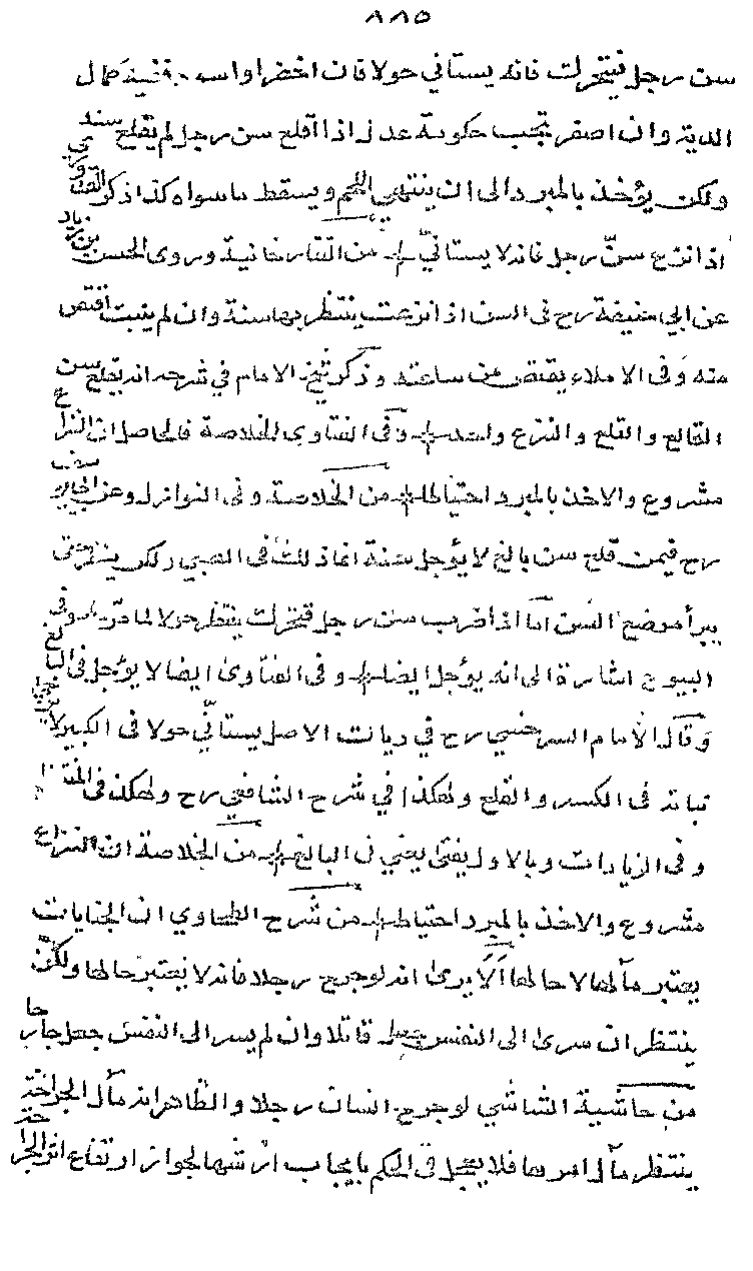 ٨٨٥
سن رجل فتحركت فانه يستاني حولا فان اخضر او اسود ففيه كمال
الدية وان اصفر تجب حكومة عدل اذا اقلع سن رجل لم يقلع سنه
ولكن يؤخذ بالمبرد الى ان ينتهي اللحم ويسقط ما سواه كذا ذكر القدوري
اذا نزع سنّ رجل فانه لا يستاني من التتارخانية وروى الحسن بن زياد
عن ابي حنيفة رح في السن اذا نزعت ينتظر بها سنة وان لم ينبت اقتص
منه وفى الاملاء يقتص من ساعته وذكر شيخ الامام في شرحه انه يقلع سن
القالع والقلع والنزع واحد وفى الفتاوى الخلاصة فالحاصل ان النزع
مشروع والاخذ بالمبرد احتياط من الخلاصة وفى النوازل وعن ابي يوسف
رح فيمن قلع سن بالغ لا يؤجل سنة انما ذلك في الصبي ولكن ينتظر حتى
يبرأ موضع السن اما اذا ضرب سن رجل فتحركت ينتظر حولا لما مر وفى
البيوع اشارة الى انه يؤجل ايضا وفى الفتاوى ايضا لا يؤجل فى البالغ
وقال الامام السرخسي رح في ديات الاصل يستاني حولا فى الكبير لا يرجى
نباته فى الكسر والقلع وهكذا في شرح الشافعي رح وهكذا فى المنتقى
وفى الزيادات وبالاول يفتى يعني فى البالغ من الخلاصة ان النزع
مشروع والاخذ بالمبرد احتياط من شرح الطحاوي ان الجنايات
يعتبر مآلها لا حالها ألا يرى انه لو جرح رجلا فانه لا يعتبر حالها ولكن
ينتظر ان سرى الى النفس جعل قاتلا وان لم يسر الى النفس جعل جارحا
من حاشية الشاشي لو جرح انسان رجلا والظاهر انه مآل الجراحة
ينتظر مآل امرها فلا يعجل فى الحكم بايجاب ارشها لجواز ارتفاع اثر الجراحة